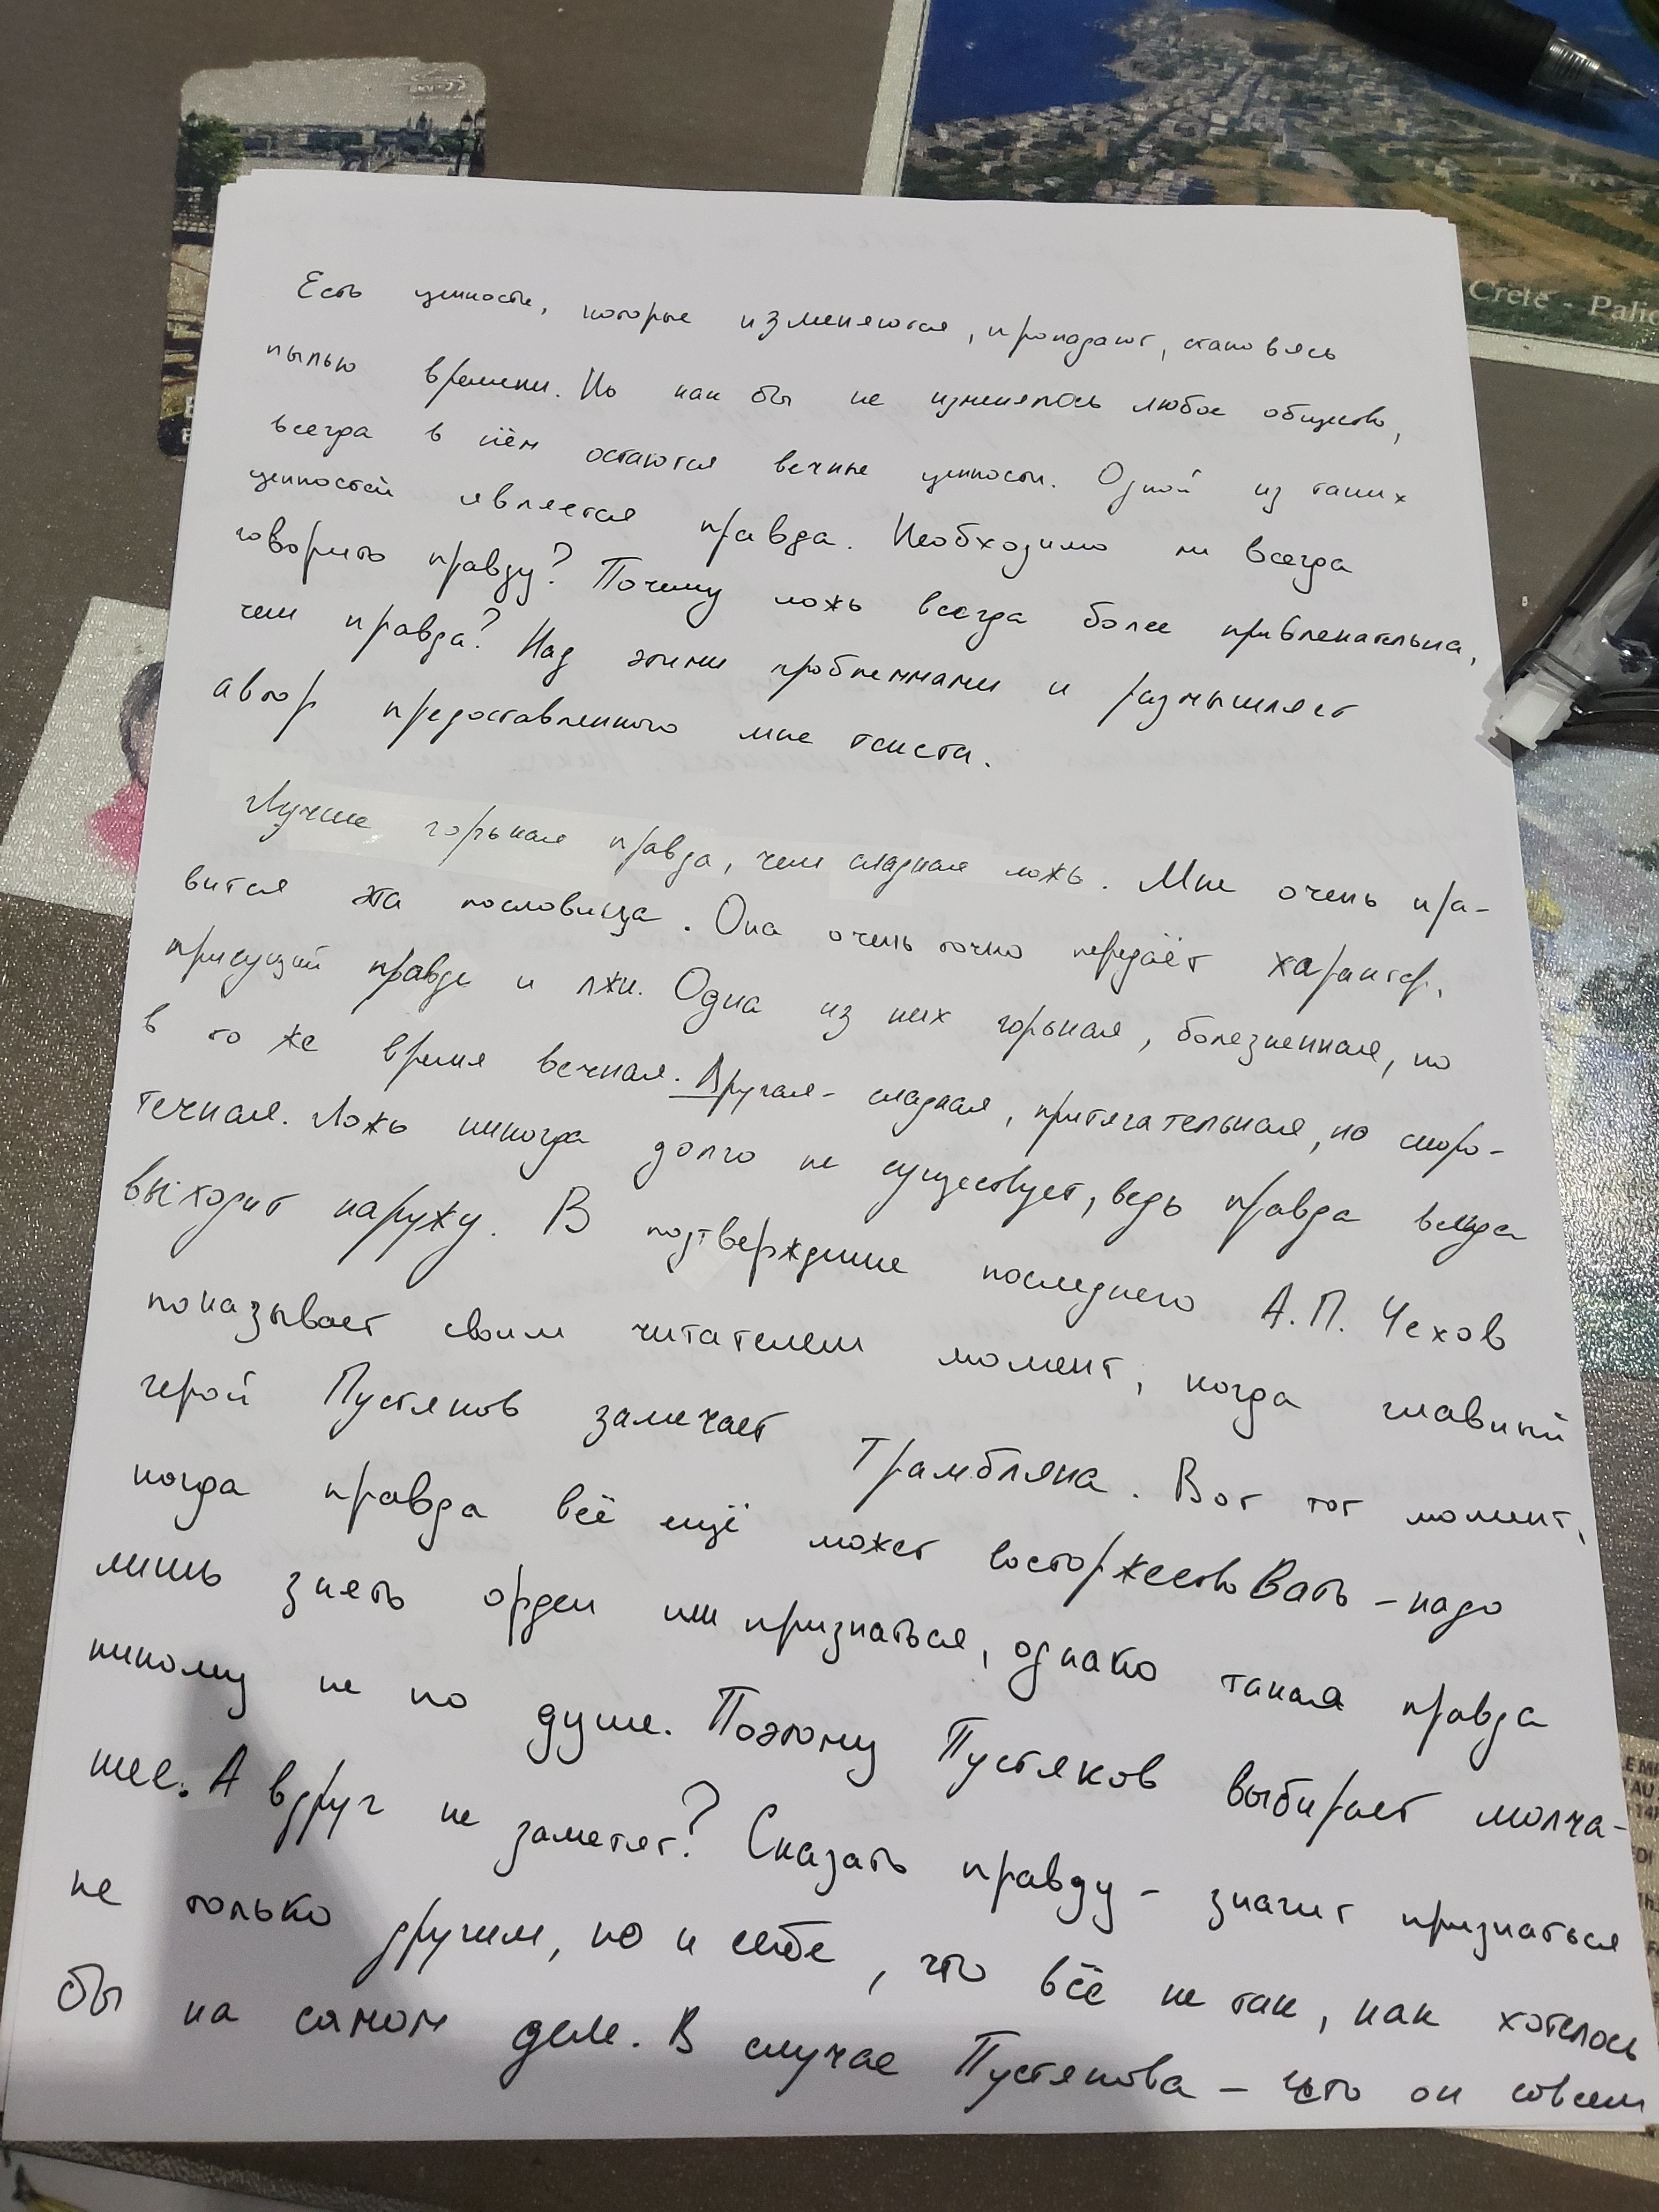 Crete - Palio
Есть ценности, которые изменяются, пропадают, становясь
пылью времени. Но как бы не изменялось любое общество,
всегда в нём остаются вечные ценности. Одной из таких
ценностей является правда. Необходимо ли всегда
говорить правду? Почему ложь всегда более привлекательна,
чем правда? Над этими проблеммами и размышляет
автор предоставленного мне текста.
Лучше горькая правда, чем сладкая ложь. Мне очень нра-
вится эта пословица. Она очень точно передаёт характер,
присущий правде и лжи. Одна из них горькая, болезненная, но
в то же время вечная. Другая - сладкая, притягательная, но скоро-
течная. Ложь никогда долго не существует, ведь правда всегда
выходит наружу. В подтверждение последнего А.П. Чехов
показывает своим читателем момент, когда главный
герой Пустяков замечает Трамбляна. Вот тот момент,
когда правда всё ещё может восторжествовать - надо
лишь снять орден или признаться, однако такая правда
никому не по душе. Поэтому Пустяков выбирает молча-
ние. А вдруг не заметят? Сказать правду - значит признаться
не только другим, но и себе, что всё не так, как хотелось
бы на самом деле. В случае Пустякова - что он совсем